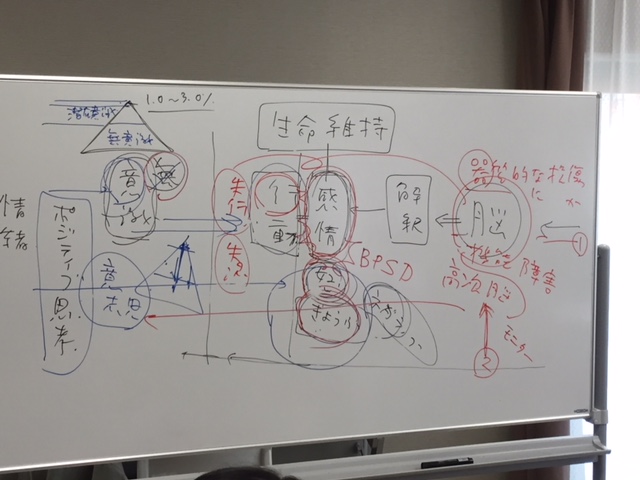 1.0~3.0%
潜在意識
無意識
生命維持
意識
無
行動
感情
解釈
脳
器質的な損傷
に
か
①
機能障害
高次脳
失行
失認
BPSD
情緒
ポジティブ思考
意思
モニター
②